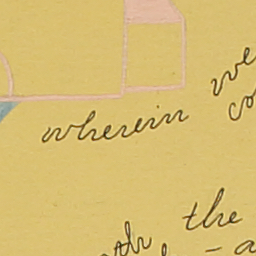 wherein we
co
the
- a